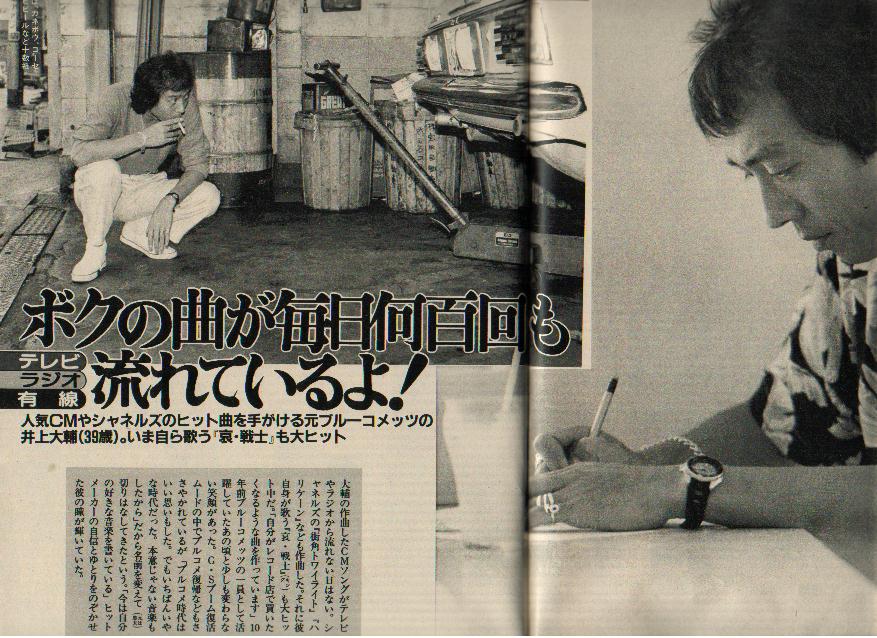 、カネボウ、コーセ
ビールなど十数社
ボクの曲が毎日何百回も
テレビ
ラジオ
有線
流れているよ!
人気CMやシャネルズのヒット曲を手がける元ブルーコメッツの
井上大輔(39歳)。いま自ら歌う『哀・戦士』も大ヒット
大輔の作曲したCMソングがテレビ
やラジオから流れない日はない。シ
ャネルズの『街角トワイライト』『ハ
リケーン』なども作曲した。それに彼
自身が歌う『哀・戦士』も大ヒッ
ト中だ。「自分がレコード店で買いた
くなるような曲を作っています」10
年前ブルーコメッツの一員として活
躍していたあの頃と少しも変わらな
い笑顔があった。G・Sブーム復活
ムードの中でブルコメ復帰などもさ
さやかれているが「ブルコメ時代は
いい思いもした。でもいちばんいや
な時代だった。本意じゃない音楽も
したから」だから名前を変えて
切りはなしてきたという。「今は自分
の好きな音楽を書いている」ヒット
メーカーの自信とゆとりをのぞかせ
た彼の瞳が輝いていた。